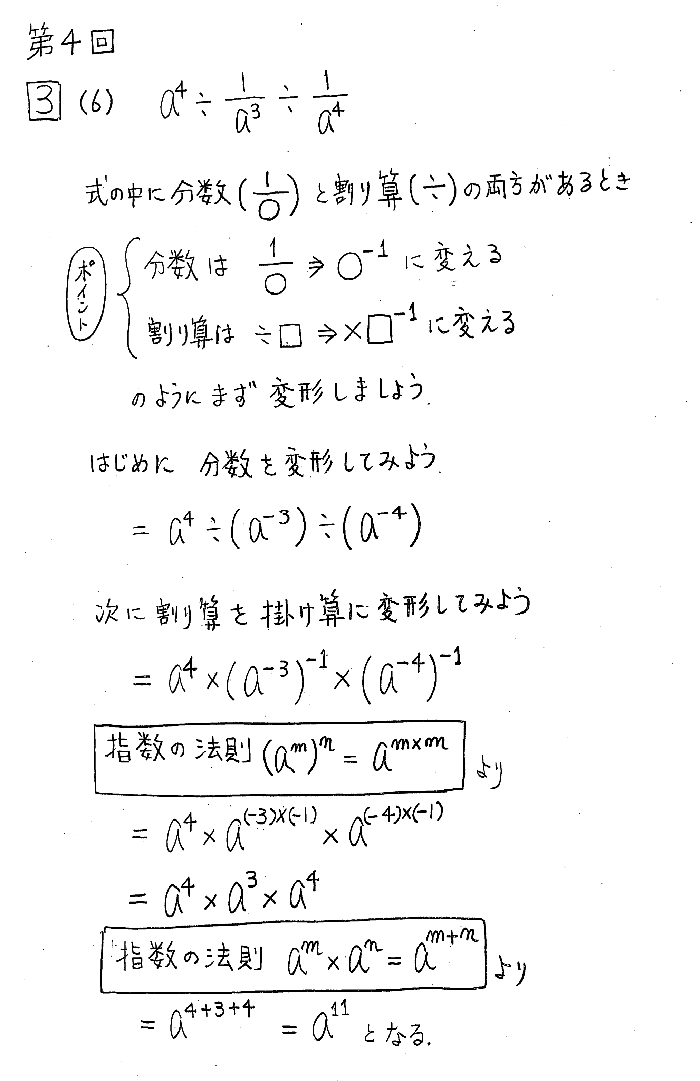 第4回
3 (6) a⁴ ÷ 1/a³ ÷ 1/a⁴
式の中に分数(1/○)と割り算(÷)の両方があるとき
ポイント
分数は 1/○ ⇒ ○⁻¹ に変える
割り算は ÷□ ⇒ ×□⁻¹ に変える
のようにまず変形しましょう.
はじめに 分数を変形してみよう.
= a⁴ ÷ (a⁻³) ÷ (a⁻⁴)
次に割り算を掛け算に変形してみよう
= a⁴ × (a⁻³)⁻¹ × (a⁻⁴)⁻¹
指数の法則 (aᵐ)ⁿ = aᵐˣᵐ より
= a⁴ × a^(-3)×(-1) × a^(-4)×(-1)
= a⁴ × a³ × a⁴
指数の法則 aᵐ × aⁿ = aᵐ⁺ⁿ より
= a⁴⁺³⁺⁴ = a¹¹ となる.